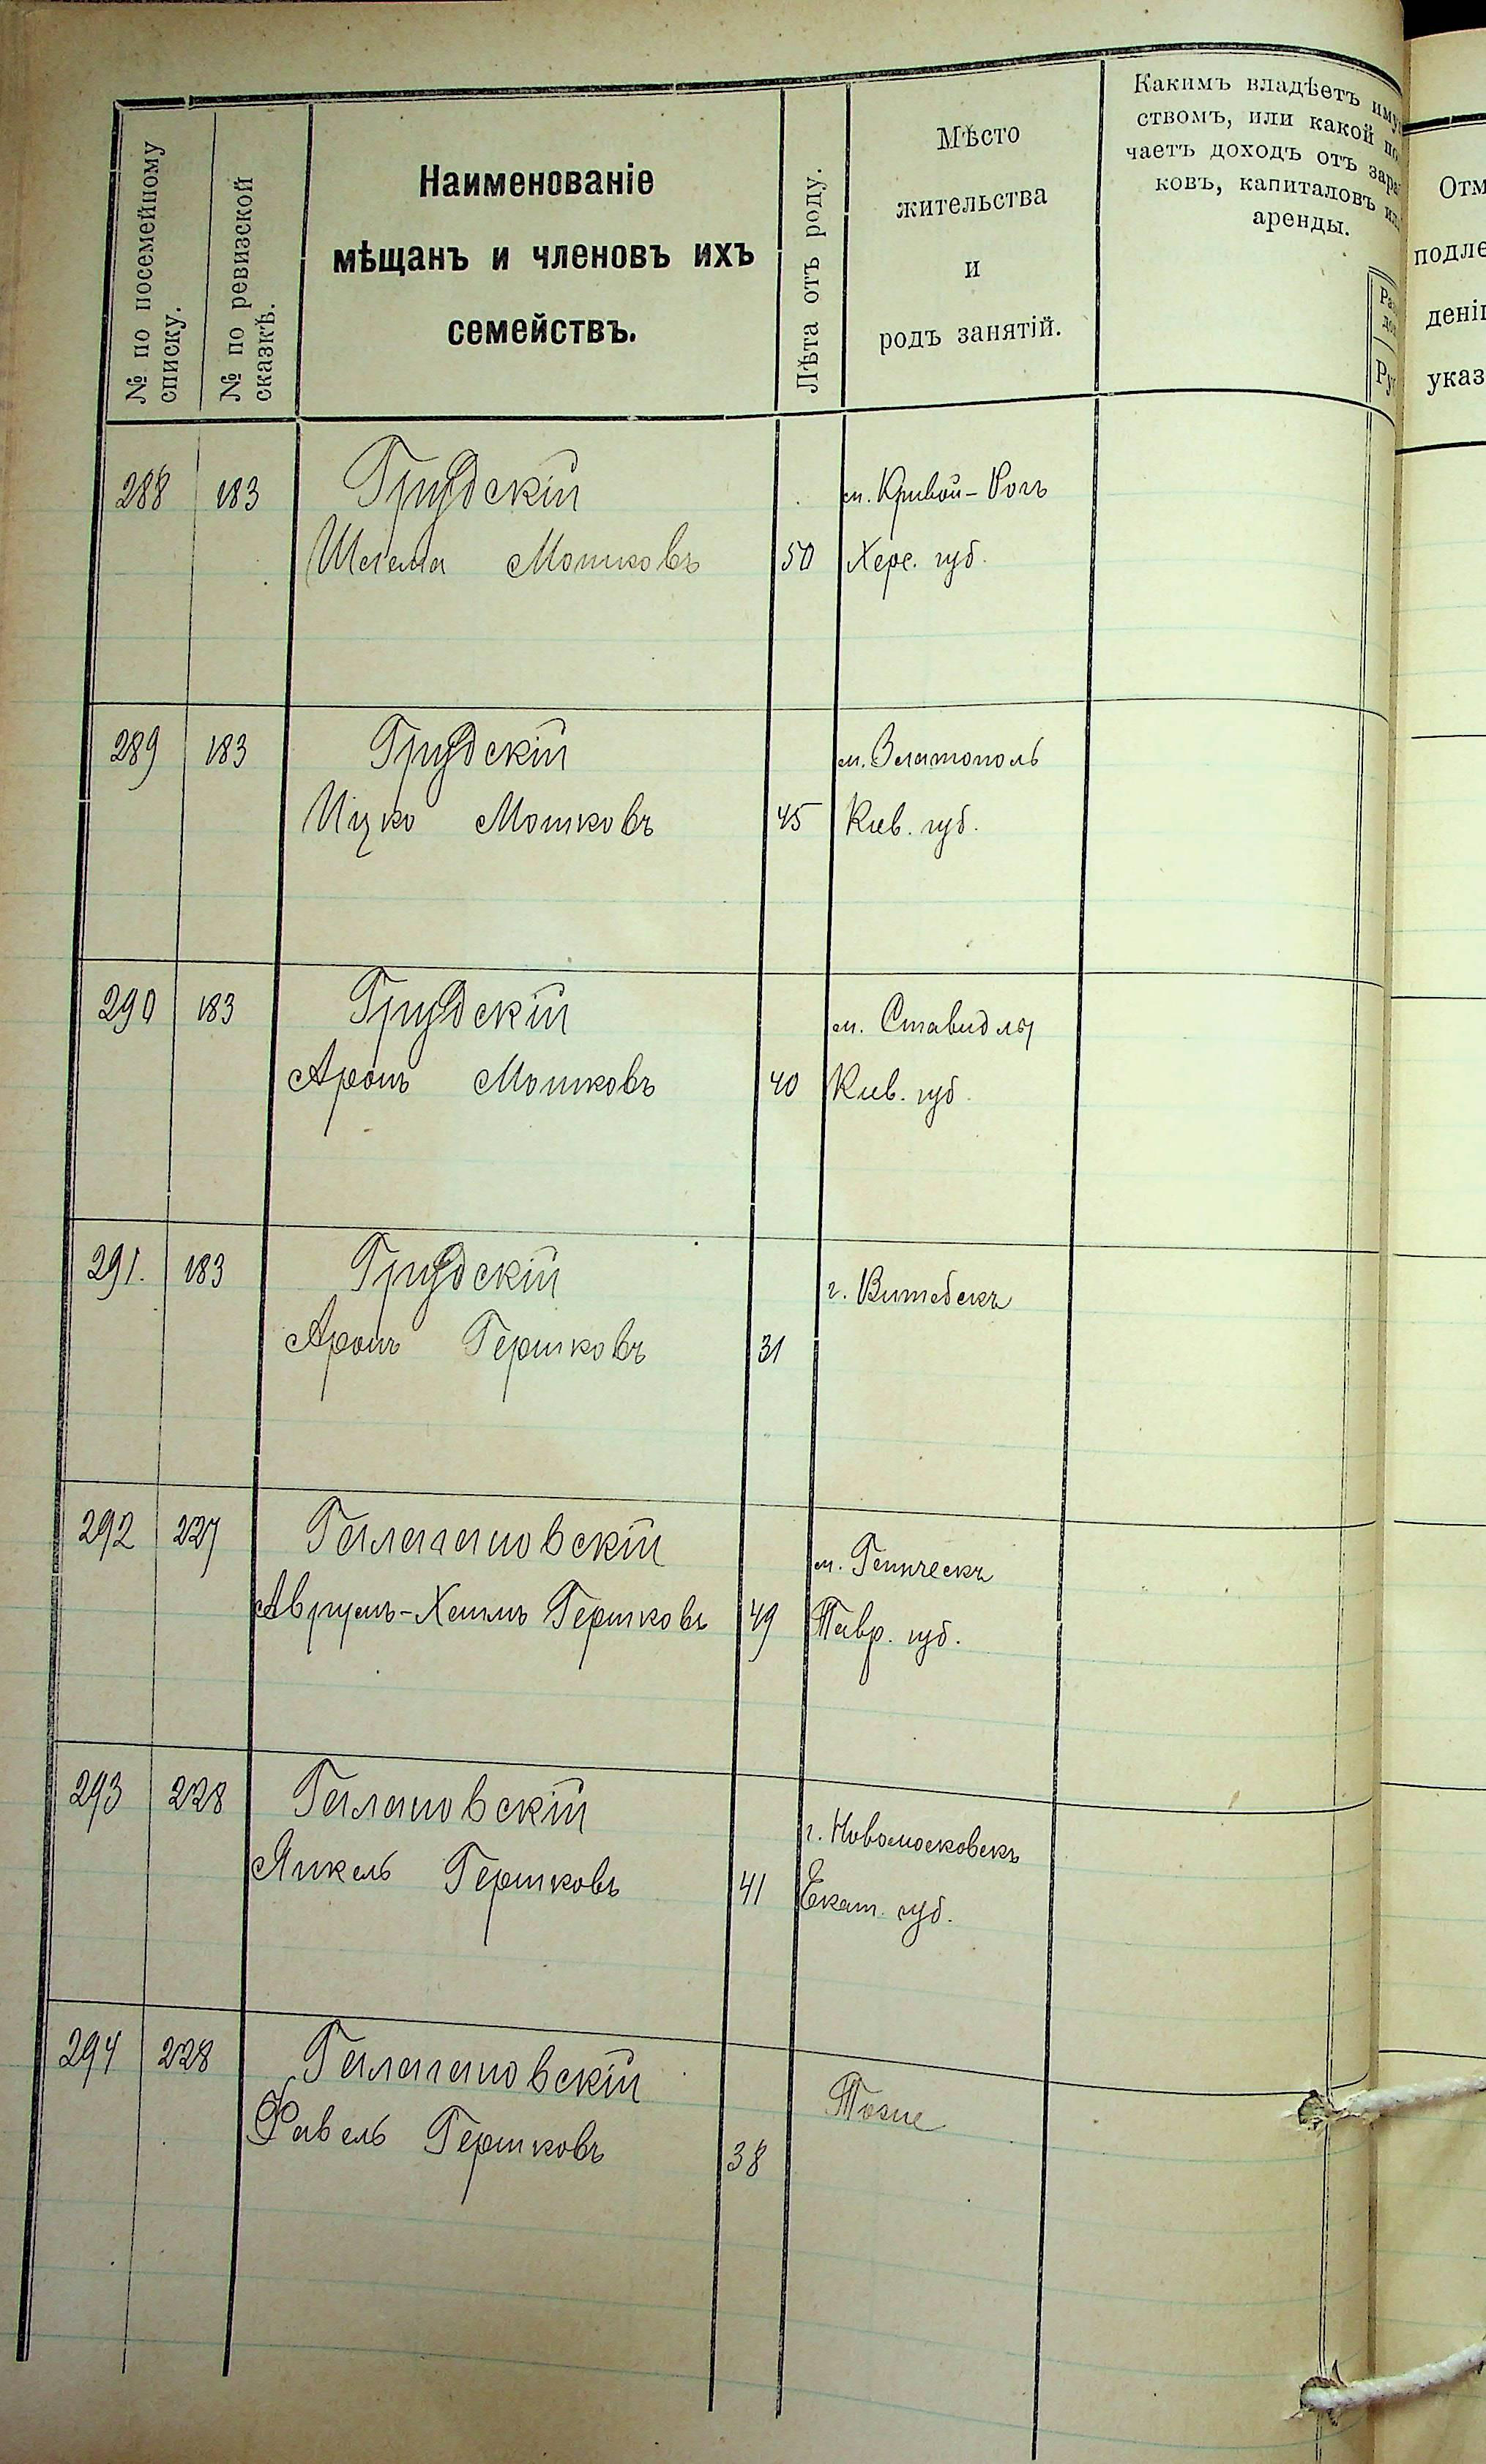 № по посемейному
списку.
№ по ревизской
сказкѣ.
Наименованіе
мѣщанъ и членовъ ихъ
семействъ.
Лѣта отъ роду.
Мѣсто
жительства
и
родъ занятій.
Какимъ владѣетъ иму
ствомъ, или какой по
чаетъ доходъ отъ зара
ковъ, капиталовъ ил
аренды.
Отм
подле
дені
указ
288 183 Грудскій м. Кривой-Рогъ
Шлема Мошковъ 50 Херс. губ.
289 183 Грудскій м. Златополь
Ицко Мошковъ 45 Киев. губ.
290 183 Грудскій м. Ставидлы
Аронъ Мошковъ 40 Киев. губ.
291. 183 Грудскій г. Витебскъ
Аронъ Гершковъ 31
292 227 Галагановскій м. Геническъ
Аврумъ-Хаимъ Гершковъ 49 Тавр. губ.
293 228 Галановскій г. Новомосковскъ
Янкель Гершковъ 41 Екат. губ.
294 228 Галагановскій Тоже
Фавель Гершковъ 38